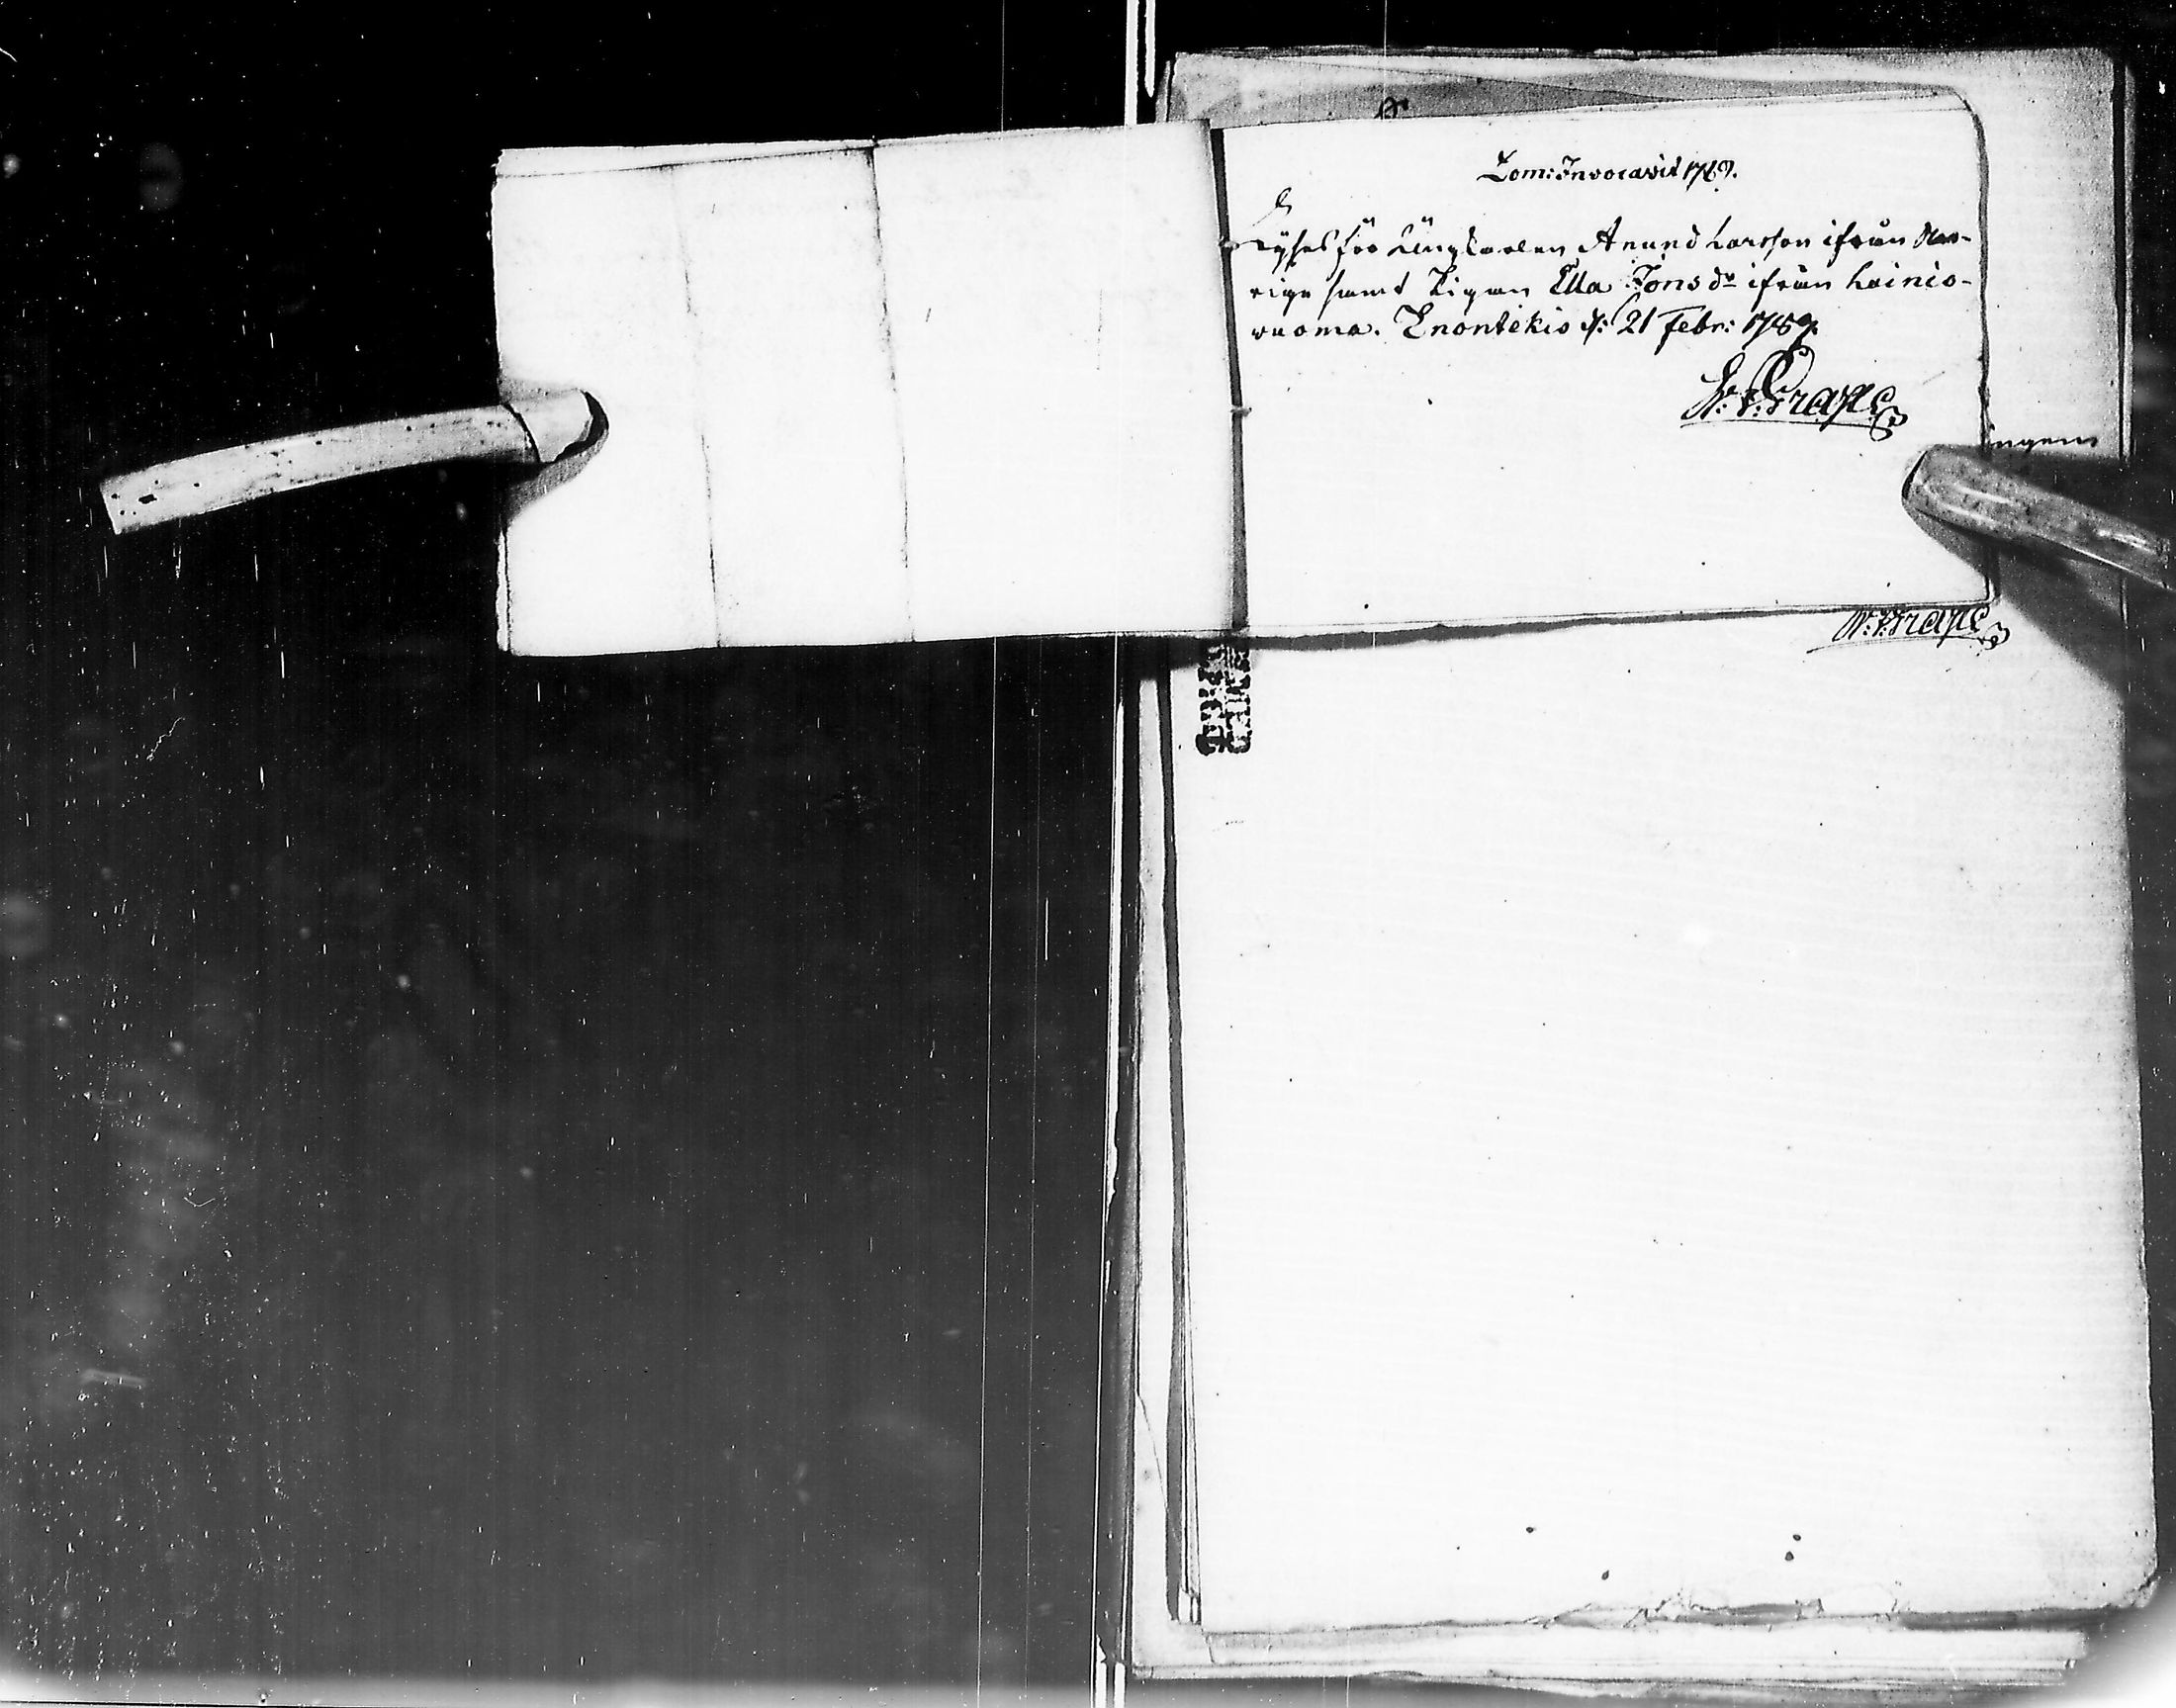 Dom: Invocavit 1789.
Lyses för Ungkarlen Anund Larsson ifrån Nor-
rige samt Pigan Ella Jonsdr ifrån Lainio-
wuoma. Enontekis d: 21 Febr: 1789.
E: J: Grape
ingem
E: J: Grape